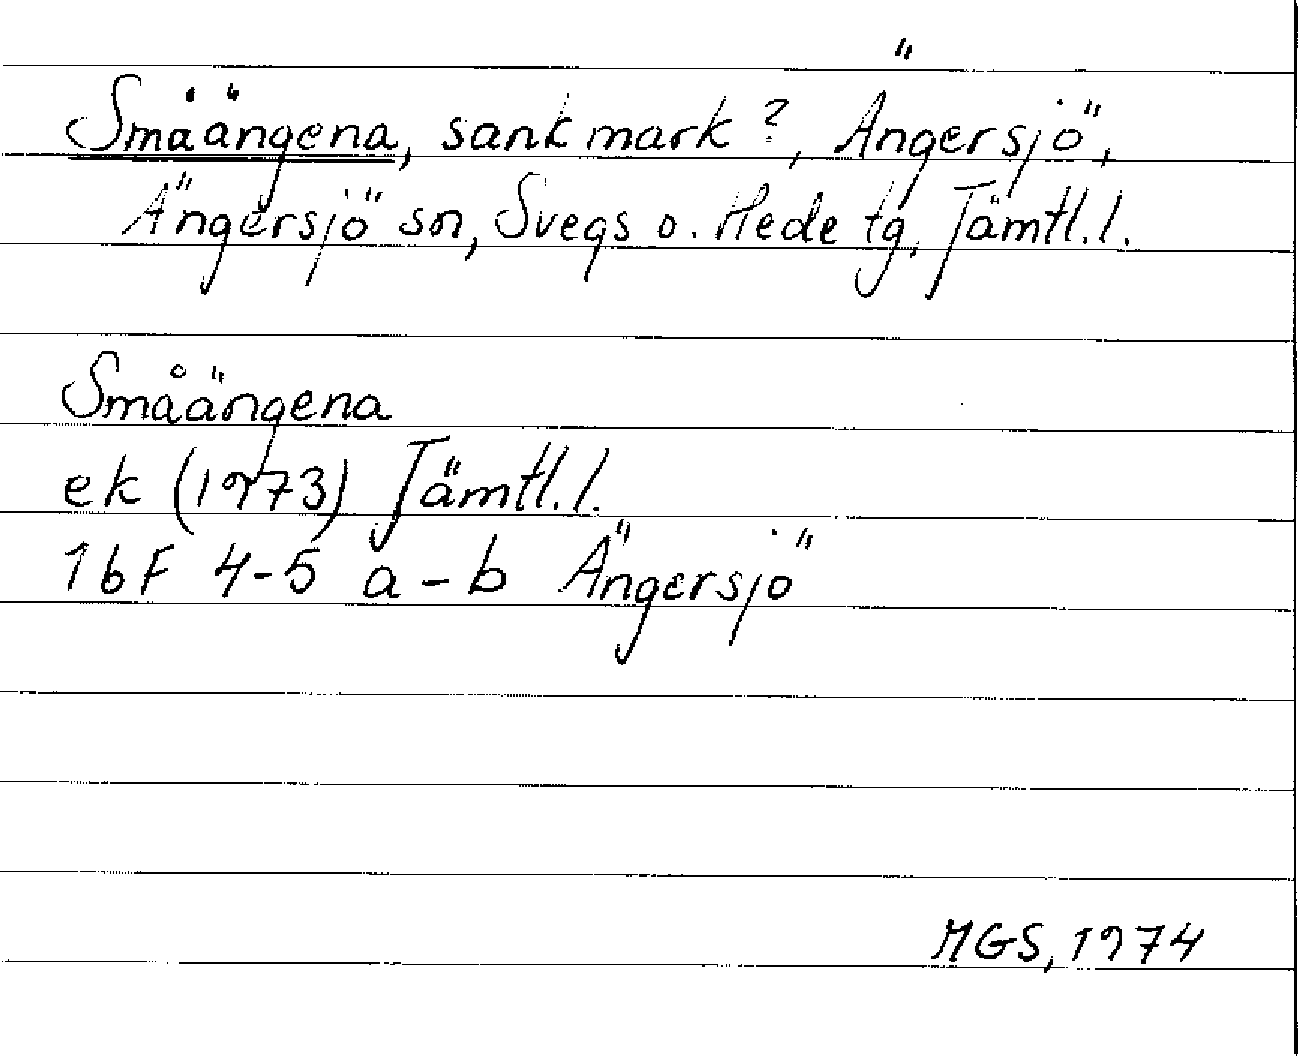 Småängena, sank mark?, Ängersjö,
Ängersjö sn, Svegs o. Hede tg, Jämtl.l.
Småängena
ek (1973) Jämtl.l.
16F 4-5 a-b Ängersjö
MGS, 1974